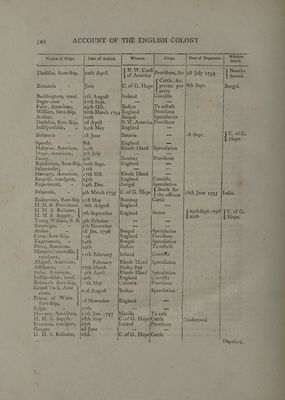 542 ACCOUNT OF THE ENGLISH COLONY
Names of Ships. Date of Arrival. Whence. Cargo. Date of Departure. Whither bound.
Dædalus, store-ship, 20th April { N. W. Coast of America Provisions, &c. 1st July 1793 { Nootka Sound.
Britannia - June C. of G. Hope { Cattle, &c. private property 8th Sept. Bengal.
Boddingtons, transf. 7th August Ireland Convicts
Sugar-cane - 17th Sept. — —
Fairy, American, 29th Oct. Boston To refresh
William, store-ship, 10th March 1794 England Provisions
Arthur, - 10th Bengal Speculation
Dædalus, store-ship, 3d April N.W. America Provisions
Indispensable, - 24th May England —
Britannia - 1st June Batavia — 1st Sept. { C. of G. Hope.
Speedy, - 8th England —
Halcyon, American, 14th Rhode Island Speculation
Hope, American, 5th July — —
Fancy, - 9th Bombay Provisions
Resolution, store-ship, 10th Sept. England —
Salamander, - 11th — —
Mercury, American, 17th Oct. Rhode Island —
Surprize, transport, 25th England Convicts
Experiment, - 24th Dec. Bengal Speculation
Britannia, - 4th March 1795 C. of G. Hope { Stock for the officers 18th June 1795 India.
Endeavour, store-ship 31st May Bombay Cattle
H. M. S. Providence 26th August England —
H. M. S. Reliance } 7th September England Stores { 29th Sept. 1796 20th { C. of G. Hope.
H. M. S. Supply, }
Young William, S. S. 4th October — —
Sovereign, - 5th November — —
Arthur, - 1st Jan. 1796 Bengal Speculation
Ceres, store ship, 23d England Provisions
Experiment, - 24th Bengal Speculation
Otter, American, 24th Boston To refresh
Marquis Cornwallis, transport, } 11th February Ireland Convicts
Abigail, American, February Rhode Island Speculation
Assistance, - 17th March Dusky Bay
Susan, American, 19th April Rhode Island Speculation
Indispensable, transf. 30th England Convicts
Britannia store-ship, 11th May Calcutta Provisions
Grand Turk, American } 23d August Boston Speculation
Prince of Wales store-ship } 2d November England —
Sylph - 17th — —
Mercury, American, 11th Jan. 1797 Manilla To refit
H. M. S. Supply, 16th May C. of G. Hope Cattle Condemned
Britannia, transport, 27th Ireland Provisions
Ganges - 2d June — —
H. M. S. Reliance, 26th C. of G. Hope Cattle
Deputed,